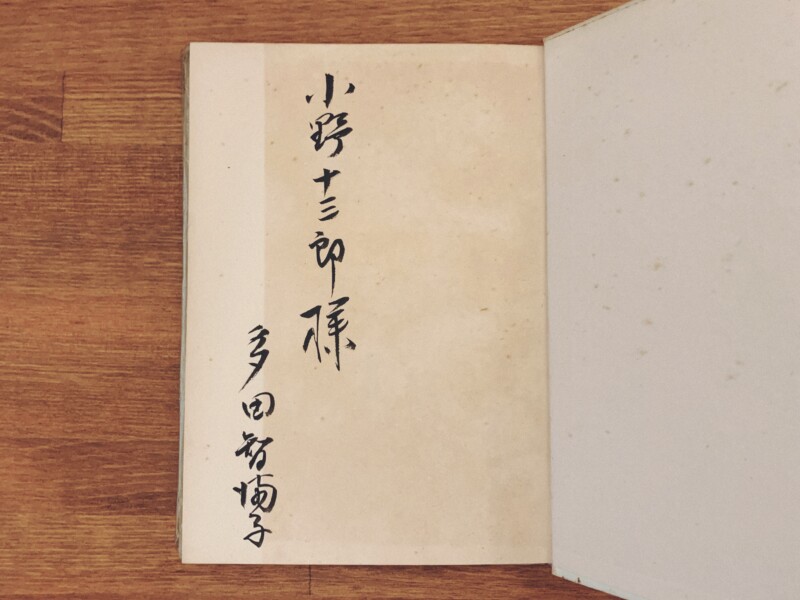 小野十三郎様
多田智満子